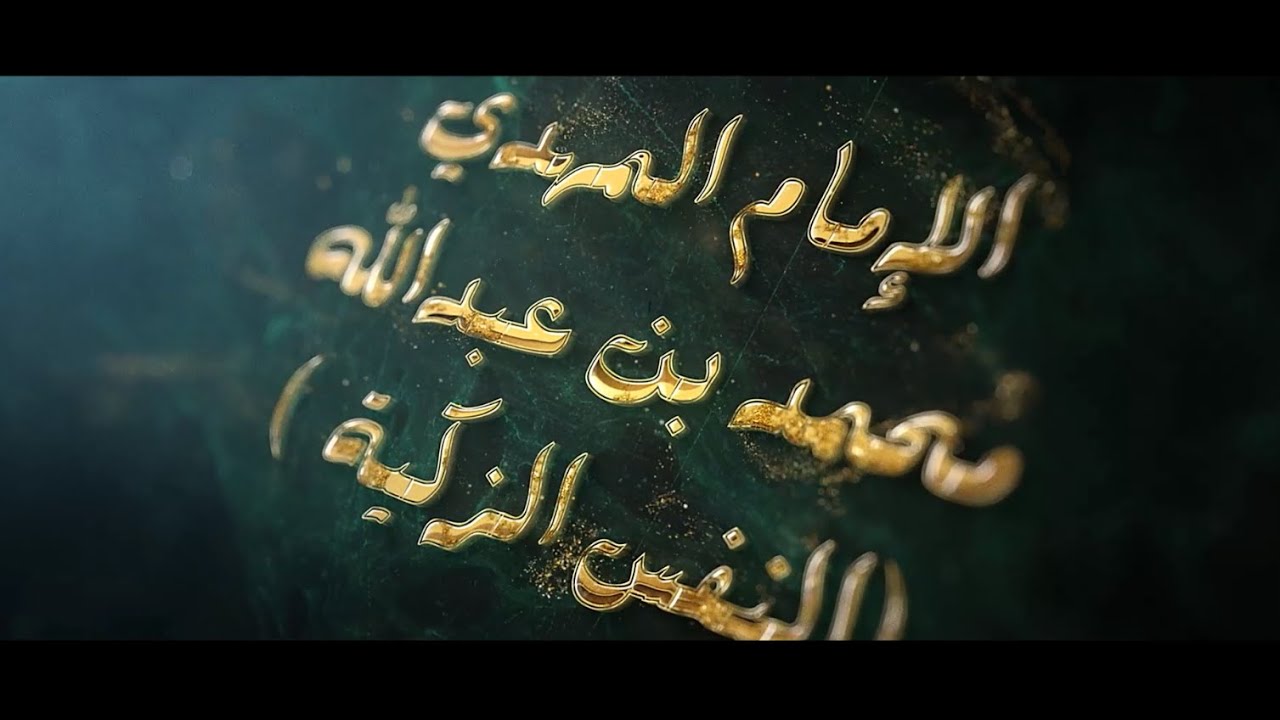 الإمام المهدي
محمد بن عبدالله
(النفس الزكية)